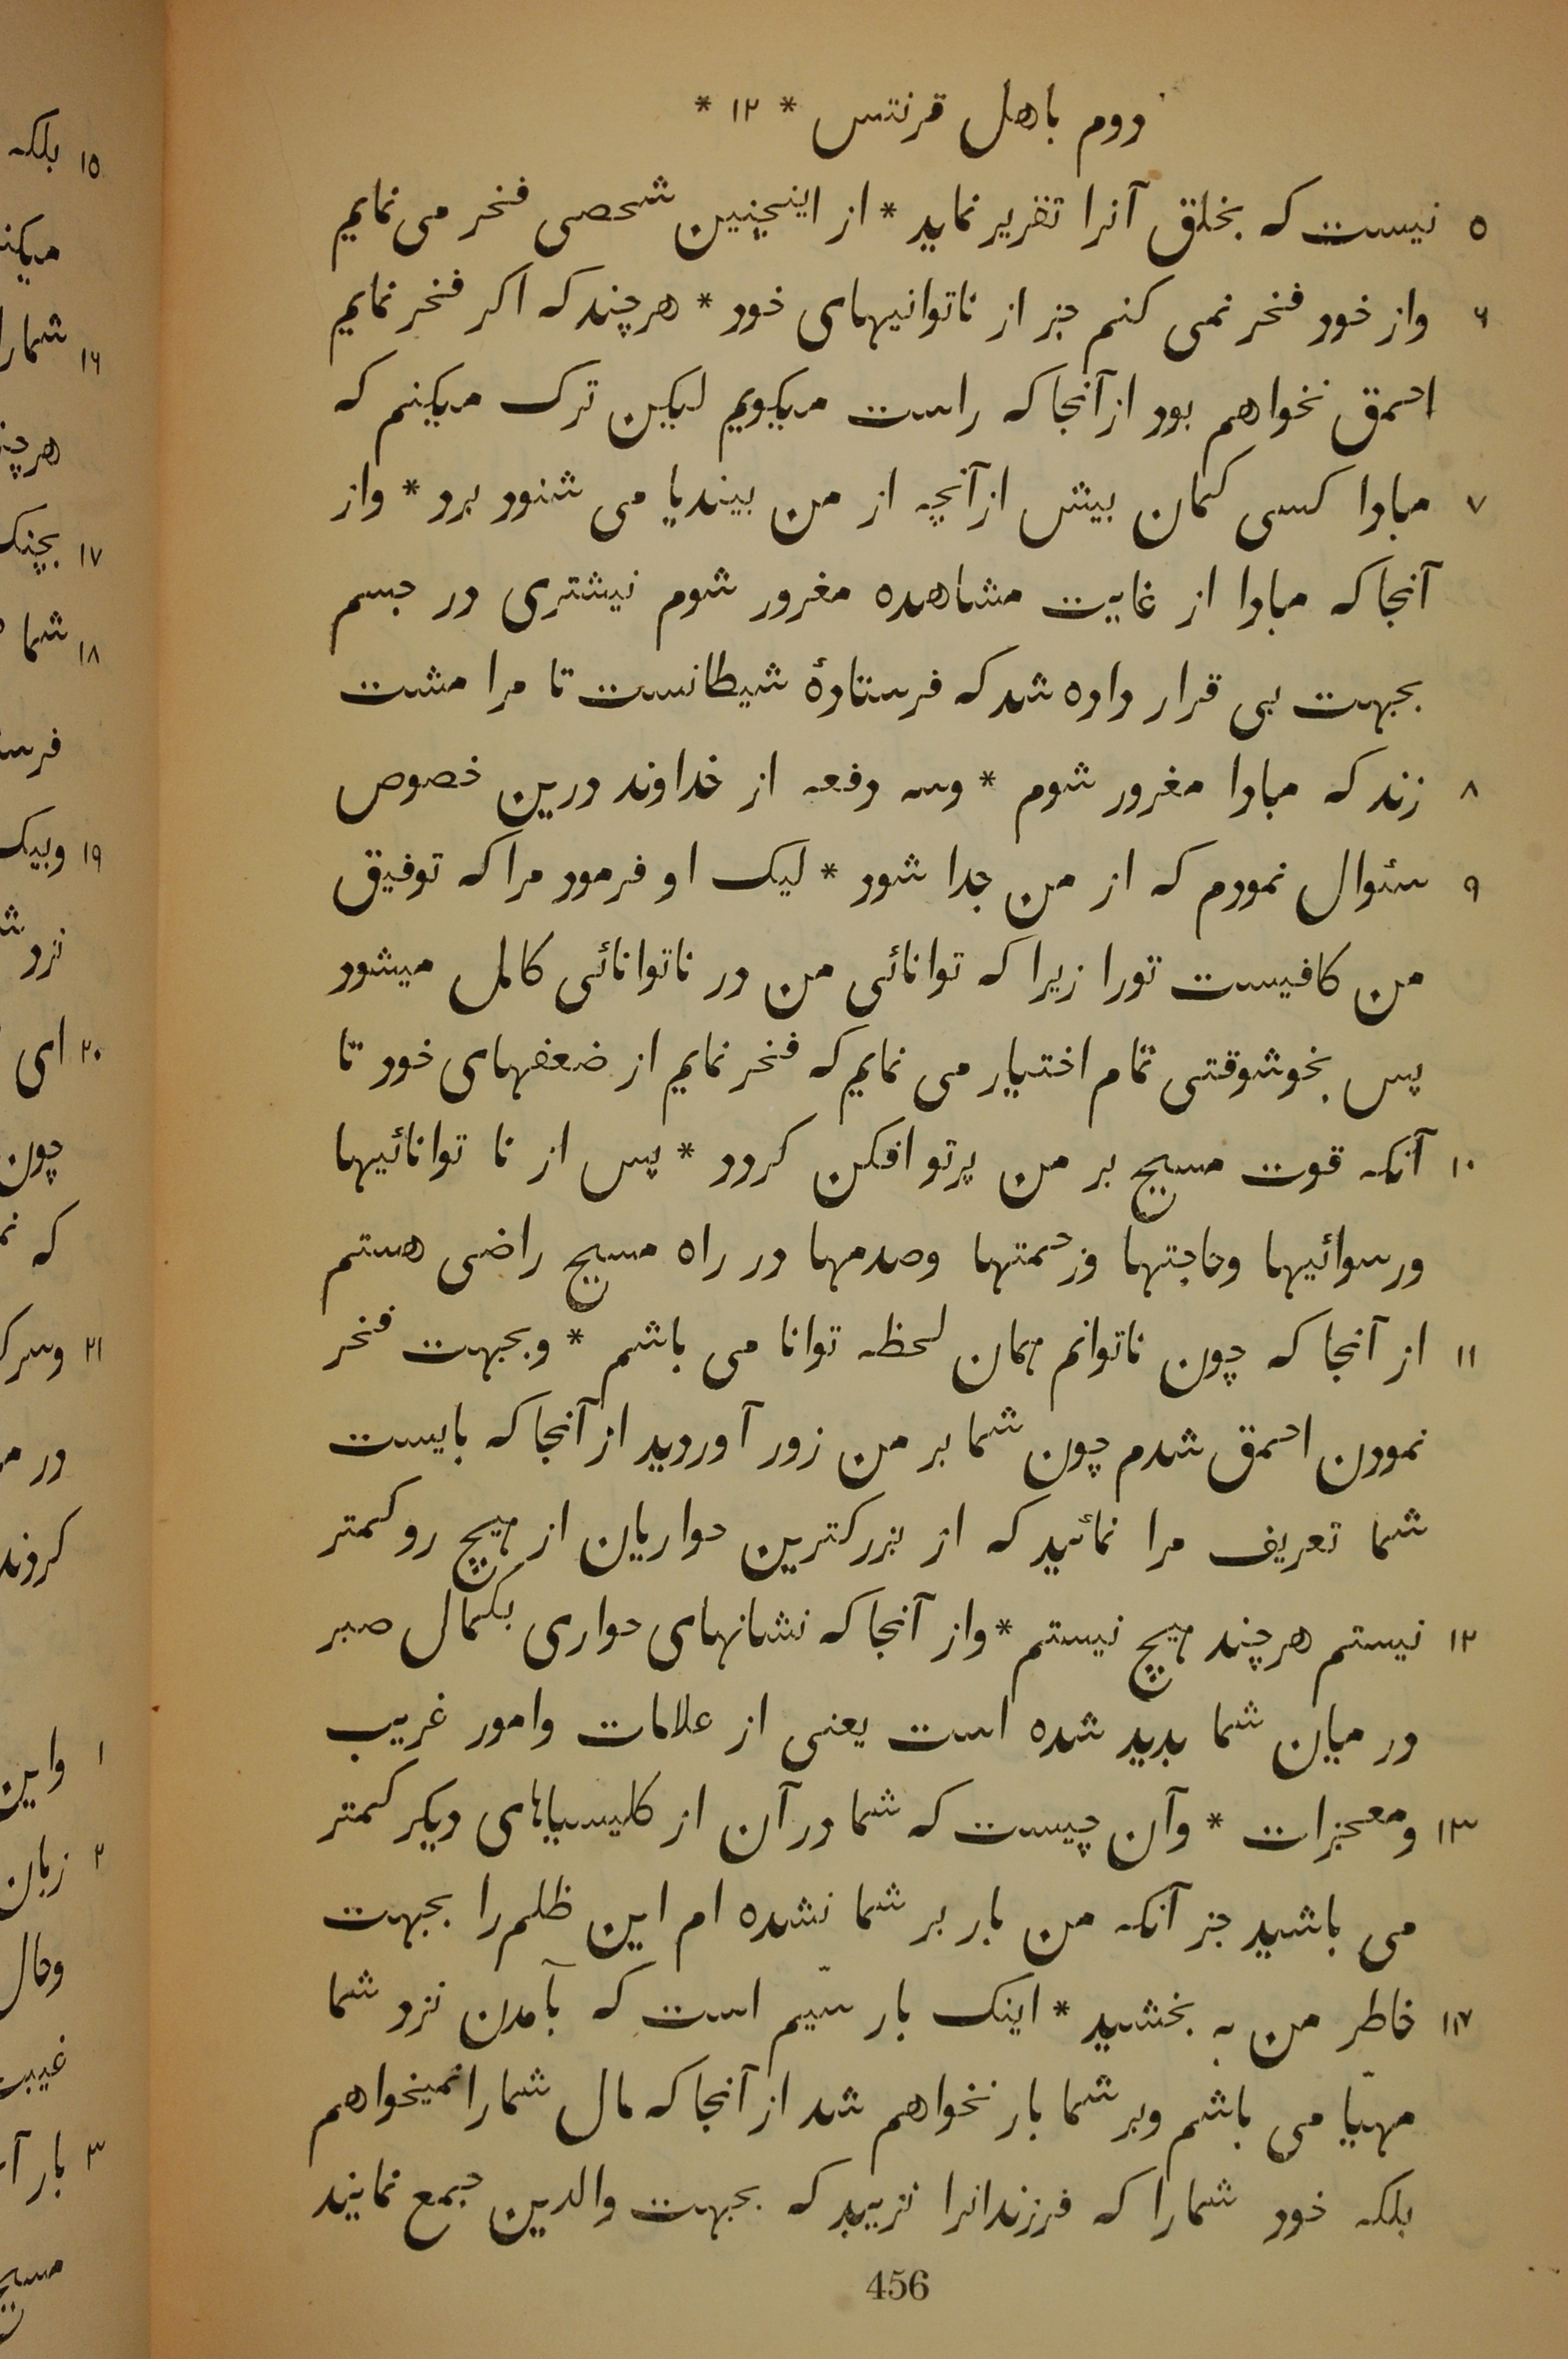 دوم باهل قرنتس * ۱۲ *
۵ نیست که بخلق آنرا تقریر نماید * از اینچنین شخصی فخر می نمایم
۶ واز خود فخر نمی کنم جز از ناتوانیهای خود * هرچند که اکر فخر نمایم
احمق نخواهم بود ازآنجا که راست میکویم لیکن ترک میکنم که
۷ مبادا کسی کمان بیش ازآنچه از من بیند یا می شنود برد * واز
آنجا که مبادا از غایت مشاهده مغرور شوم نیشتری در جسم
بجهت بی قرار داده شد که فرستادهٔ شیطانست تا مرا مشت
۸ زند که مبادا مغرور شوم * وسه دفعه از خداوند درین خصوص
۹ سئوال نمودم که از من جدا شود * لیک او فرمود مرا که توفیق
من کافیست تورا زیرا که توانائی من در ناتوانائی کامل میشود
پس بخوشوقتی تمام اختیار می نمایم که فخر نمایم از ضعفهای خود تا
۱۰ آنکه قوت مسیح بر من پرتو افکن کردد * پس از نا توانائیها
ورسوائیها وحاجتها وزحمتها وصدمها در راه مسیح راضی هستم
۱۱ از آنجا که چون ناتوانم همان لحظه توانا می باشم * وبجهت فخر
نمودن احمق شدم چون شما بر من زور آوردید از آنجا که بایست
شما تعریف مرا نمائید که از بزرکترین حواریان از هیچ رو کمتر
۱۲ نیستم هرچند هیچ نیستم * واز آنجا که نشانهای حواری بکمال صبر
در میان شما بدید شده است یعنی از علامات وامور غریب
۱۳ ومعجزات * وآن چیست که شما در آن از کلیسیاهای دیکر کمتر
می باشید جز آنکه من بار بر شما نشده ام این ظلم را بجهت
۱۴ خاطر من به بخشید * اینک بار سیّم است که بآمدن نزد شما
مهیّا می باشم وبر شما بار نخواهم شد از آنجا که مال شمارا نمیخواهم
بلکه خود شمارا که فرزندانرا نزیبد که بجهت والدین جمع نمایند
456
۱۵ بلکه
شمارا ۱۶
۱۷
۱۸ شما
۱۹
۲۰ ای
چون
که
۲۱
۱ واین
۲ زبان
وحال
۳ بار
مسیح